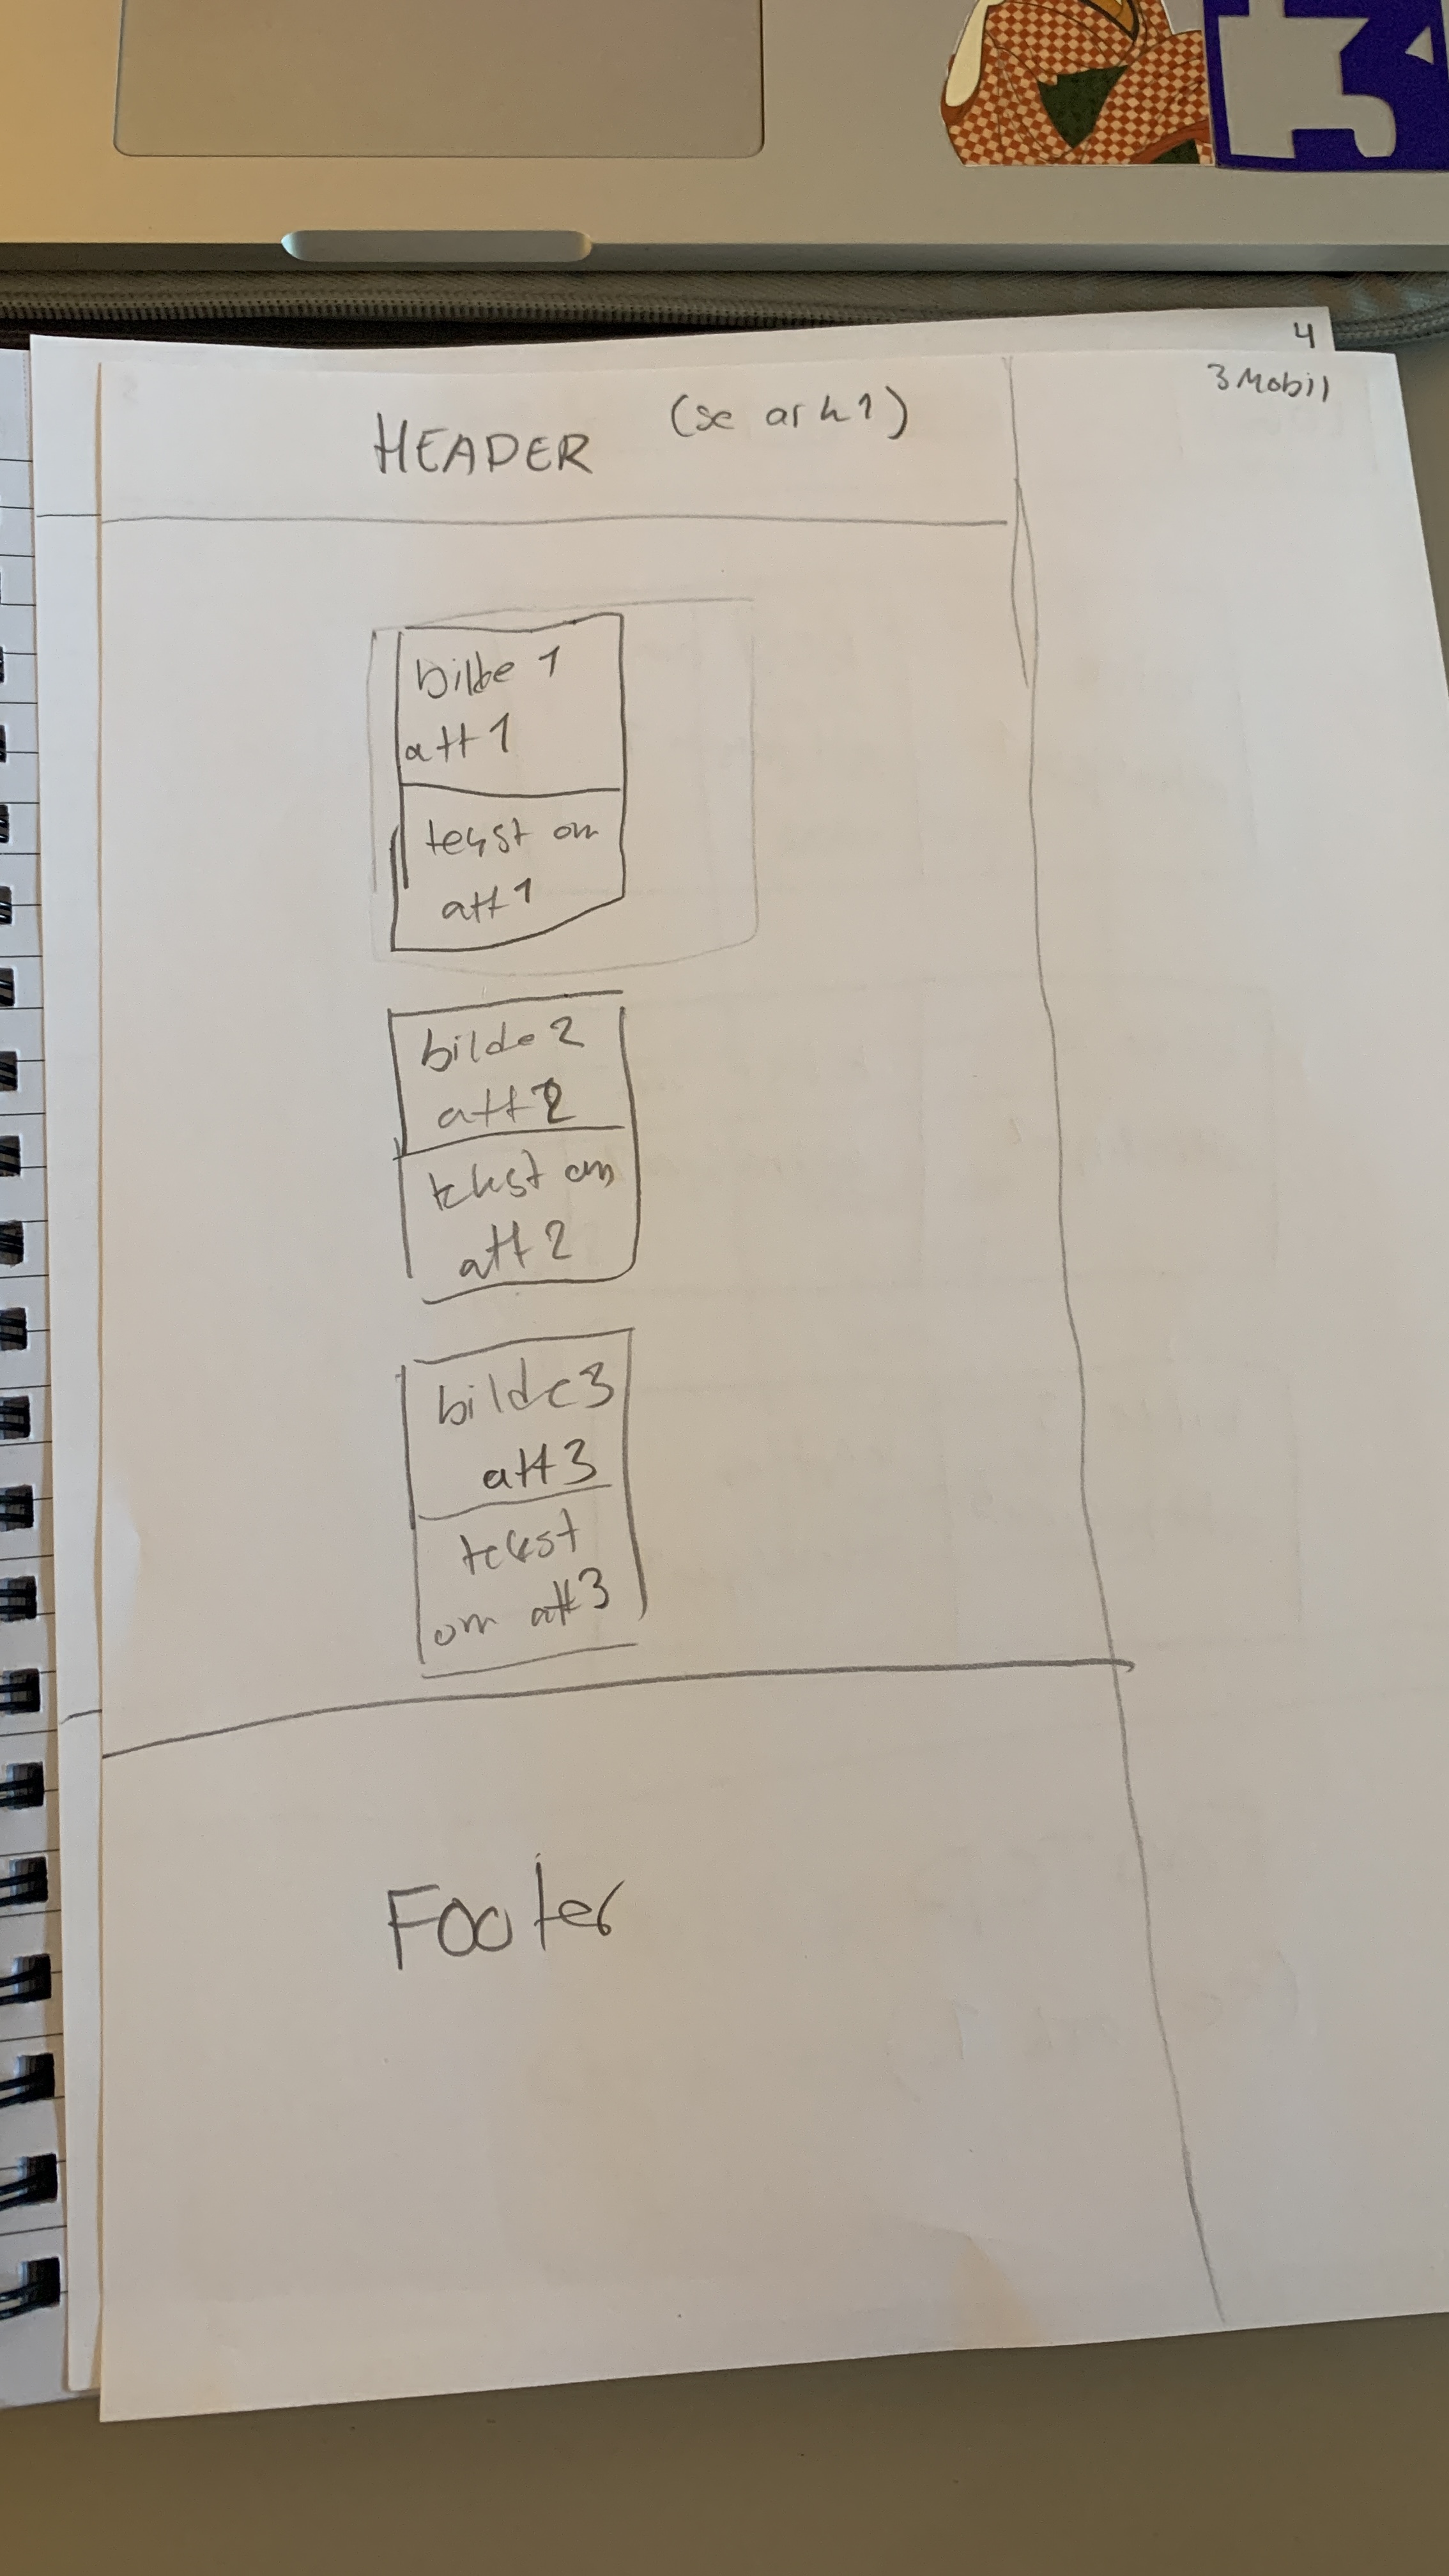 4
3 Mobil
HEADER (se ark 1)
bilde 1
att 1
tekst om
att 1
bilde 2
att 2
tekst om
att 2
bilde 3
att 3
tekst
om att 3
Footer